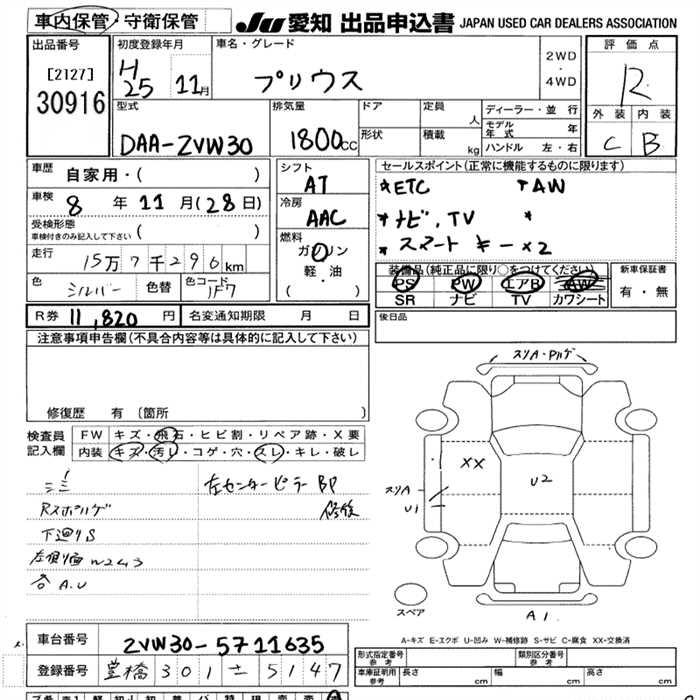 車内保管・守衛保管
JU 愛知 出品申込書 JAPAN USED CAR DEALERS ASSOCIATION
出品番号 初度登録年月 車名・グレード 2WD・4WD 評価点
[2127] 30916 H25 11月 プリウス R
外装 内装
C B
型式 排気量 ドア 定員 人 ディーラー・並行
モデル年式 年
DAA-ZVW30 1800cc 形状 積載 kg ハンドル 左・右
車歴 自家用・( )
シフト AT
セールスポイント(正常に機能するものに限ります)
*ETC *AW
車検 8年 11月(28日)
冷房 AAC
*ナビ,TV *
受検形態 車検付きのみ記入して下さい ( )
*スマートキー×2
走行 15万7千296km
燃料 ガソリン 軽・油 ( )
装備品(純正品に限り○をつけてください)
PS PW エアB AW
SR ナビ TV カワシート
新車保証書 有・無
色 シルバー 色替 色コード 1F7
R券 11,820円 名変通知期限 月 日
後日品
注意事項申告欄(不具合内容等は具体的に記入して下さい)
修復歴 有 (箇所 )
検査員記入欄 FW キズ・飛石・ヒビ割・リペア跡・X要
内装 キズ・汚レ・コゲ・穴・スレ・キレ・破レ
左センターピラーBP
修復
下廻りS
各A.U
XX
U2
スリA
U1
A1
スペア
A-キズ E-エクボ U-凹み W-補修跡 S-サビ C-腐食 XX-交換済
車台番号 ZVW30-5711635
登録番号 豊橋 301 ± 5147
形式指定番号 参考 類別区分番号 参考
車庫証明用 参考 長さ cm 幅 cm 高さ cm